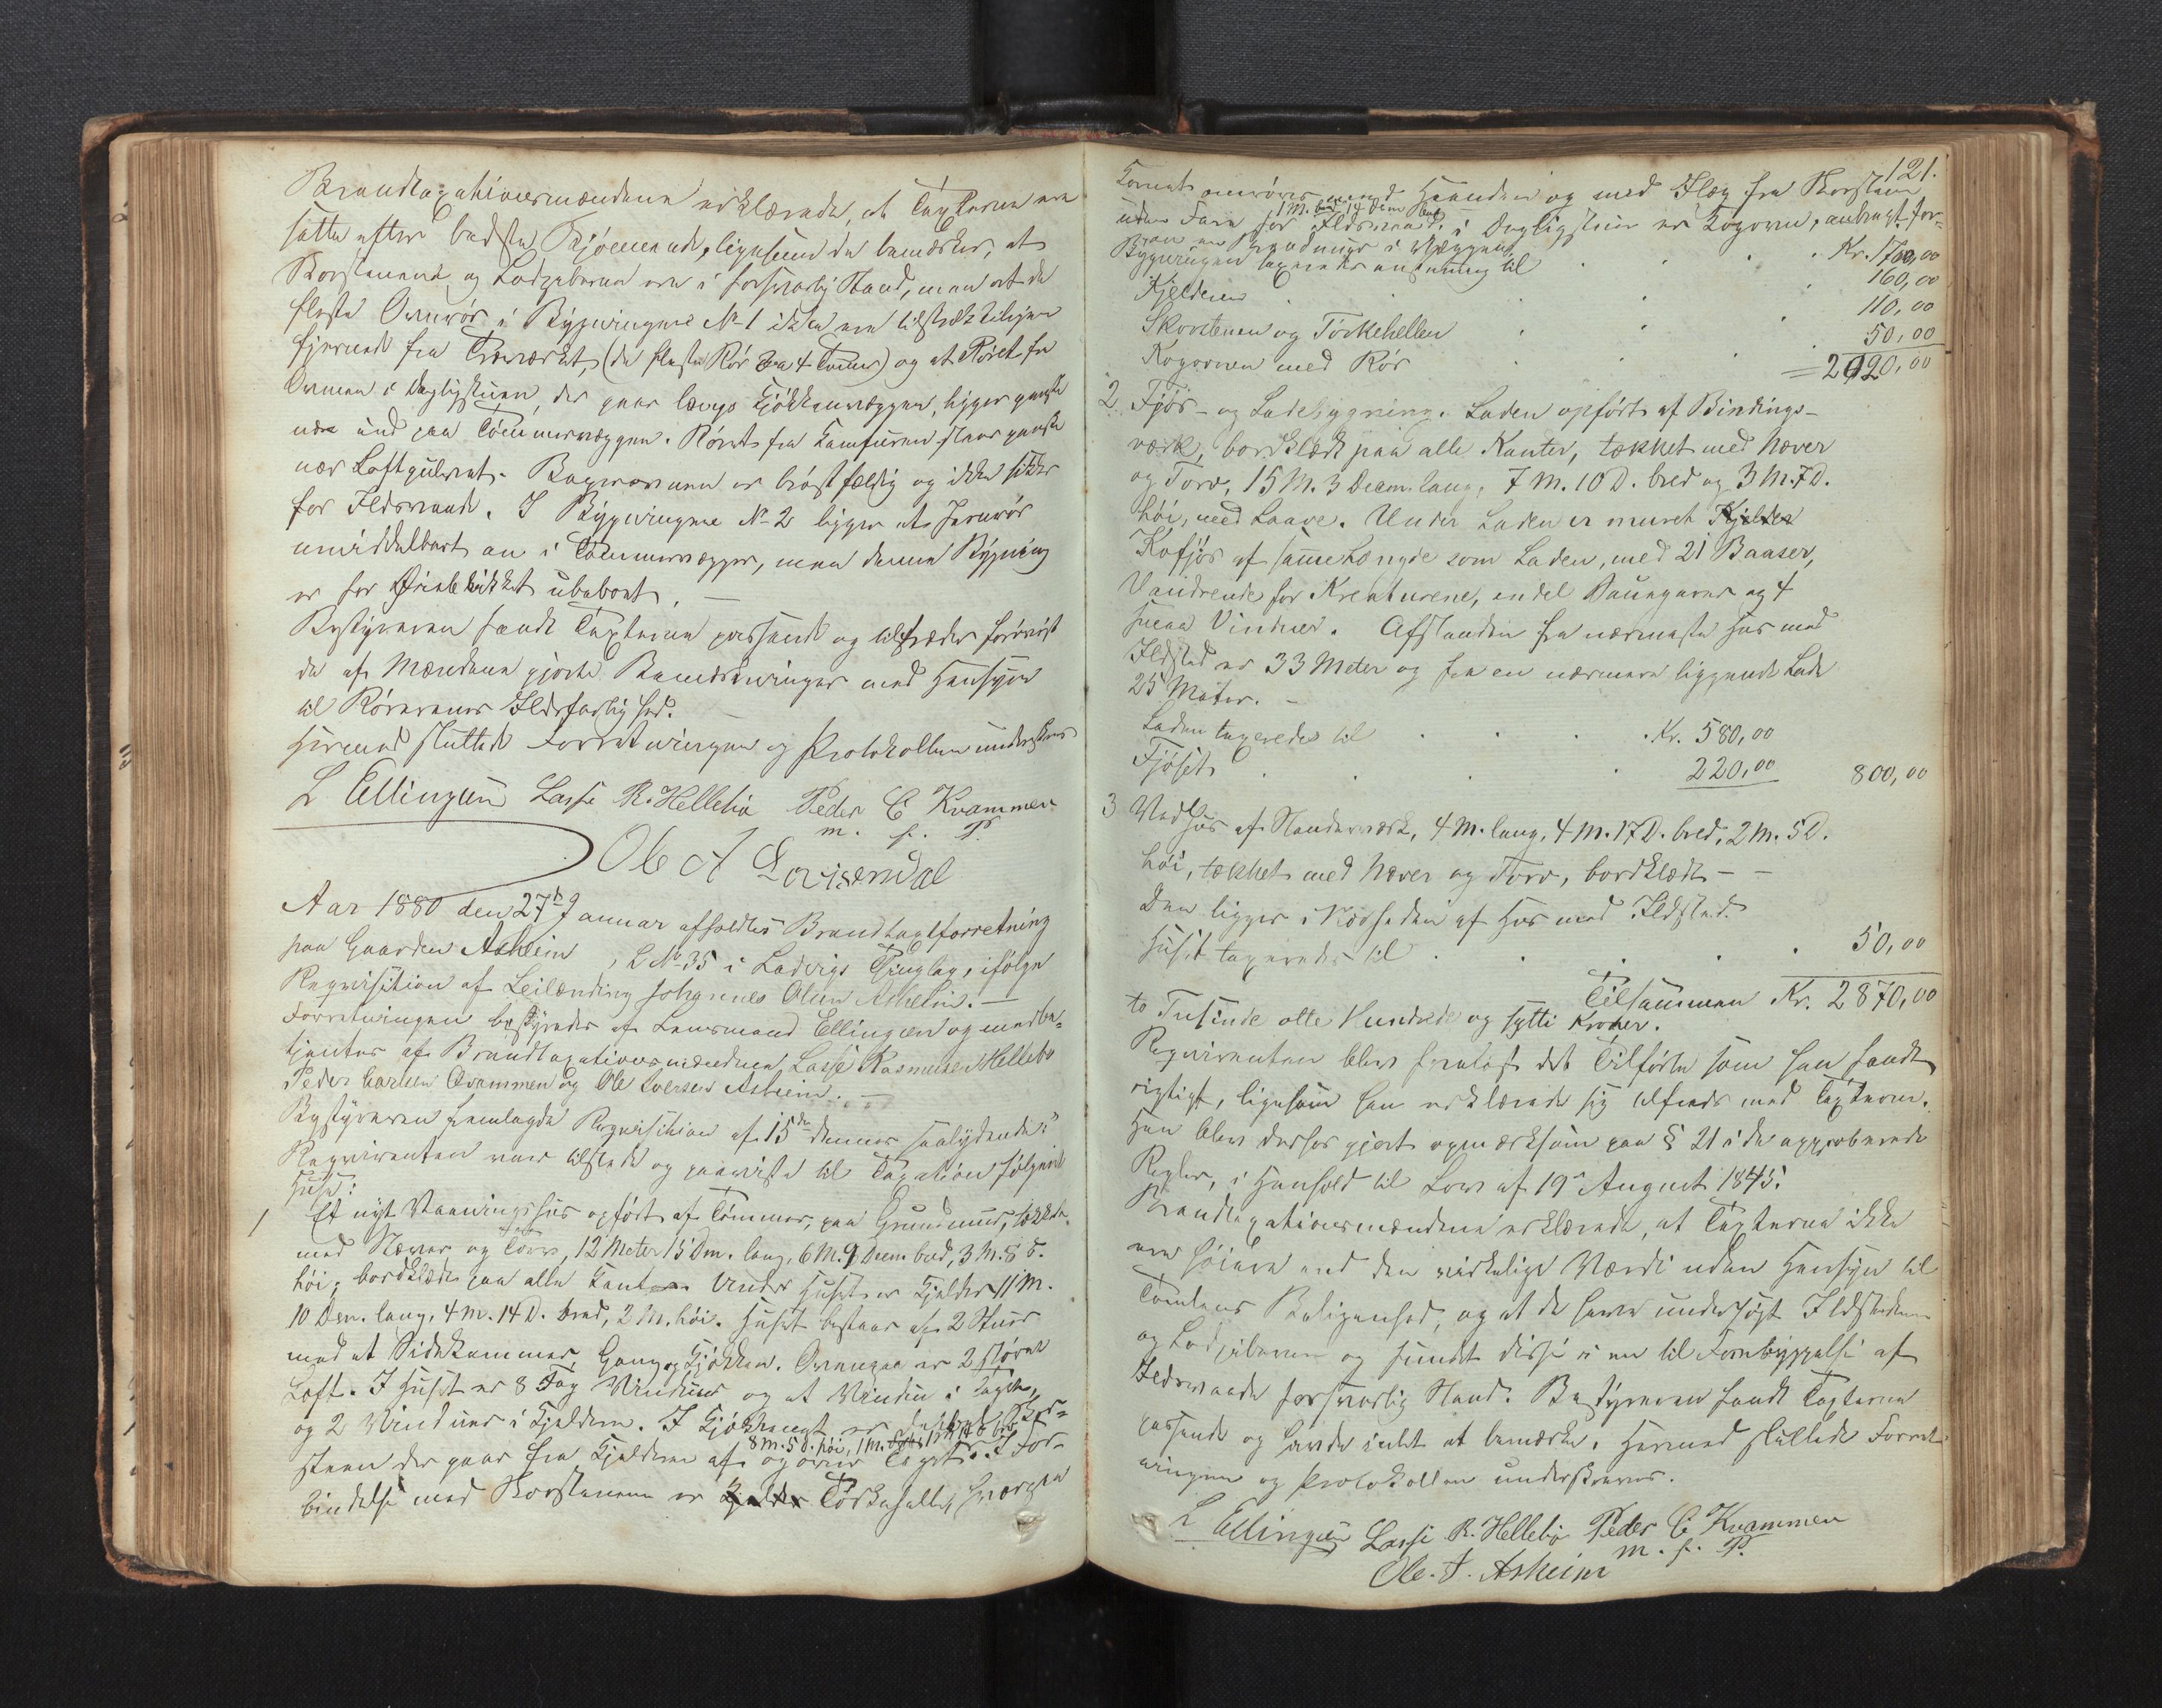 Brandtaxationsmændene erklærede, at Taxterne ere
satte efter bedste Skjønnende, ligesom de bemærker, at
Skorstenene og Ladpiberne ere i forsvarlig Stand, men at de
fleste Ovnrør i Bygningene No 1 ikke ere tilstrækkeligen
fjernede fra Træværket, (de fleste Rør fra 4 Tommer) og at Røret fra
Ovnen i Dagligstuen, der gaar længs Kjøkkenvæggen, ligger ganske
nær ind paa Tømmervæggen. Røret fra Komfuren staar ganske
nær Loftgulvet. Bagerovnen er brøstfældig og ikke sikker
for Ildsvaade. I Bygningene No 2 ligger et Jernrør
umiddelbart an i Tømmervægger, men denne Bygning
er for Øieblikket ubeboet. —
Bestyreren fandt Taxterne passende og tiltræder forøvrigt
de af Mændene gjorte Bemærkninger med Hensyn
til Rørenes Ildsfarlighed. —
Hermed sluttet Forretningen og Protokollen underskreves
L Ellingsen Lasse R. Hellebø Peder C Kvammen
m. f. P.
Ole A Lovisendal
Aar 1880 den 27de Januar afholdtes Brandtaxtforretning
paa Gaarden Askeim, L No 35 i Ladvigs Thinglag, ifølge
Requisition af Leilænding Johannes Olsen Askeim. —
Forretningen bestyredes af Lensmand Ellingsen og medbe-
tjentes af Brandtaxationsmændene Lasse Rasmusen Hellebø
Peder Larsen Qvammen og Ole Iversen Askeim. —
Bestyreren fremlagde Requisition af 15de dennes saalydende:
Requirenten var tilstede og paaviste til Taxation følgende
Huse:
1 Et nyt Vaaningshus opført af Tømmer, paa Grundmur, tækket
med Næver og Torv, 12 Meter 15 Dm. lang, 6 M. 9 Decm bred, 3 M. 8 D.
høi, bordklædt paa alle Kanter. Under Huset er Kjelder 11 M.
10 Dem. lang, 4 M. 14 D. bred, 2 M. høi. Huset bestaar af 2 Stuer
med et Sidekammer, Gang og Kjøkken. Ovenpaa er 2
Loft. I Huset er 8 Fag Vinduer og et Vindu i Taget,
og 2 Vinduer i Kjelderen. I Kjøkkenet er Skor-
8 M. 5 D. høi, 1 M.
stenen der gaar fra Kjelderen af og over Taget. I For-
bindelse med Skorstenen er Tørkehelle, hvorpaa
121.
Kornet omrøres med Haanden og med Ilæg fra Skorstenen
uden Fare for Ildsvaade. i Dagligstuen er Kogovn, anbragt for-
Brandmur i Væggen
Bygningen taxeredes til . . . . Kr. 1700,00
Kjelderen . . . . 160,00
Skorstenen og Tørkehellen . . . 110,00
Kogovnen med Rør . . . 50,00
= 2020,00
2. Fjøs- og Ladebygning. Laden opført af Bindings-
værk, bordklædt paa alle Kanter, tækket med Næver
og Torv, 15 M. 3 Decm. lang, 7 M. 10 D. bred og 3 M. 7 D.
høi, med Laave. Under Laden er muret Kjelder
Kofjøs af samme Længde som Laden, med 21 Baaser,
Vandrende for Kreaturene, endel Baungarer og 4
smaa Vinduer. Afstanden fra nærmeste Hus med
Ildsted er 33 Meter og fra en nærmere liggende Lade
25 Meter. —
Laden taxeredes til . . . . Kr. 580,00
Fjøset . . . . 220,00 800,00
3 Vedhus af Standerværk, 4 M. lang, 4 M. 17 D. bred, 2 M. 5 D.
høi, tækket med Næver og Torv, bordklædt — —
Den ligger i Nærheden af Hus med Ildsted.
Huset taxeredes til . . . . . 50,00
Tilsammen Kr. 2870,00
to Tusinde otte Hundrede og sytti Kroner.
Requirenten blev forelæst det Tilførte som han fandt
rigtigt, ligesom han erklærede sig tilfreds med Taxterne.
Han blev derfor gjort opmærksom paa § 21 i de approberede
Regler, i Henhold til Lov af 19de August 1845.
Brandtaxationsmændene erklærede, at Taxterne ikke
ere høiere end den virkelige Værdi uden Hensyn til
Tomtens Beliggenhed, og at de have undersøgt Ildstederne
og Ladpiberne og fundet disse i en til Forebyggelse af
Ildsvaade forsvarlig Stand. Bestyreren fandt Taxterne
passende og havde intet at bemærke. Hermed sluttede Forret-
ningen og Protokollen underskreves.
L Ellingsen Lasse R. Hellebø Peder C Kvammen
m. f. P.
Ole. I. Askeim